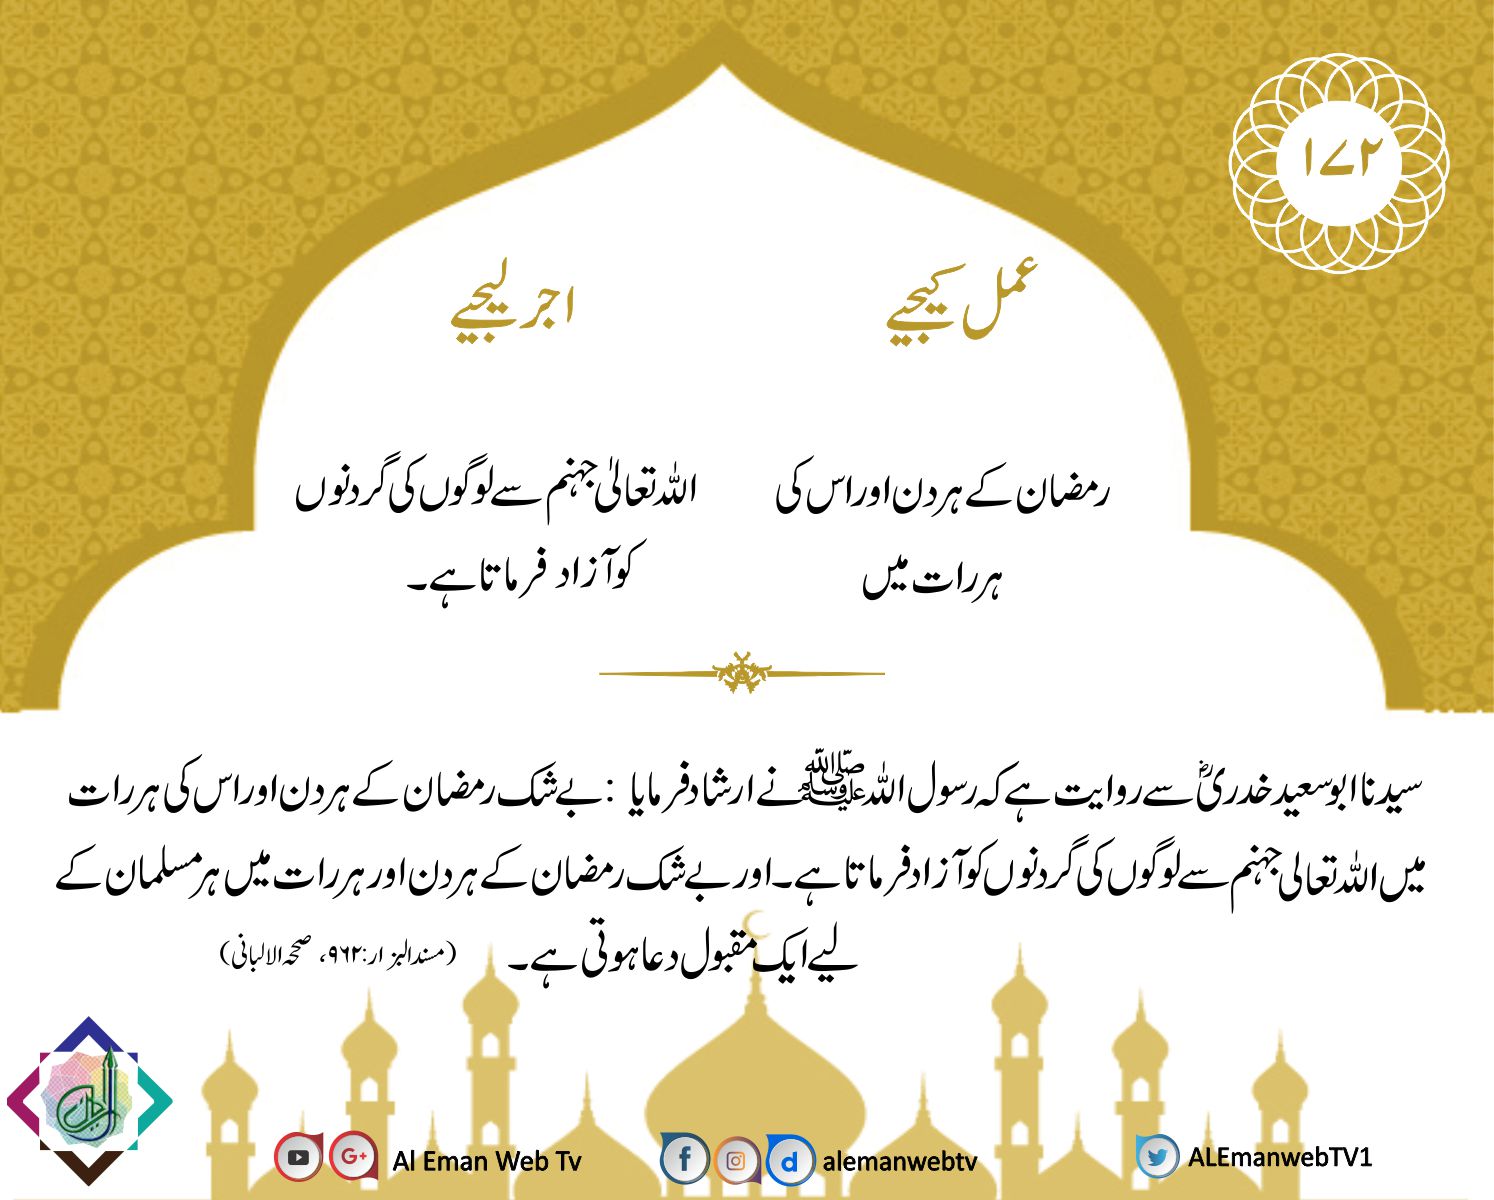 ۱۷۲
عمل کیجیے
اجر لیجیے
رمضان کے ہر دن اور اس کی
ہر رات میں
اللہ تعالیٰ جہنم سے لوگوں کی گردنوں
کو آزاد فرماتا ہے۔
سیدنا ابو سعید خدریؓ سے روایت ہے کہ رسول اللہ ﷺ نے ارشاد فرمایا : بے شک رمضان کے ہر دن اور اس کی ہر رات
میں اللہ تعالی جہنم سے لوگوں کی گردنوں کو آزاد فرماتا ہے۔ اور بے شک رمضان کے ہر دن اور ہر رات میں ہر مسلمان کے
لیے ایک مقبول دعا ہوتی ہے۔ (مسند البزار:۹۶۲، صححہ الالبانی)
Al Eman Web Tv
alemanwebtv
ALEmanwebTV1